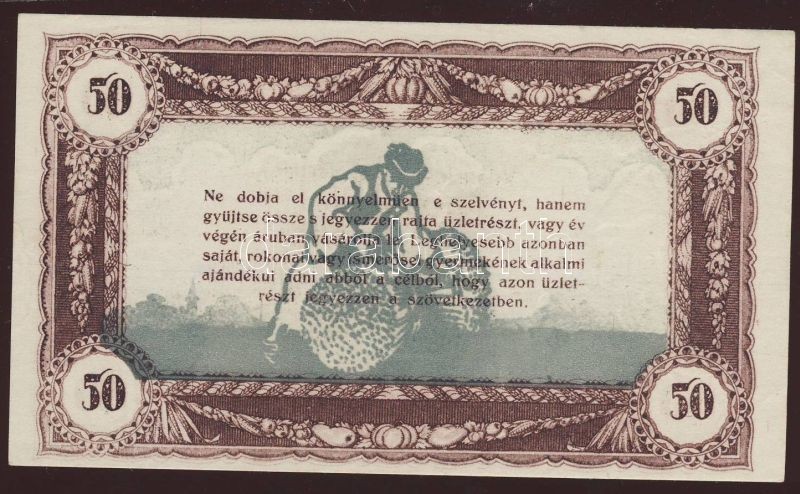 50
50
Ne dobja el könnyelmüen e szelvényt, hanem
gyüjtse össze s jegyezzen rajta üzletrészt, vagy év
végén áruban vásárolja le. Leghelyesebb azonban
saját, rokona vagy (ismerőse) gyermekének alkalmi
ajándékul adni abból a célból, hogy azon üzlet-
részt jegyezzen a szövetkezetben.
darabanth
50
50